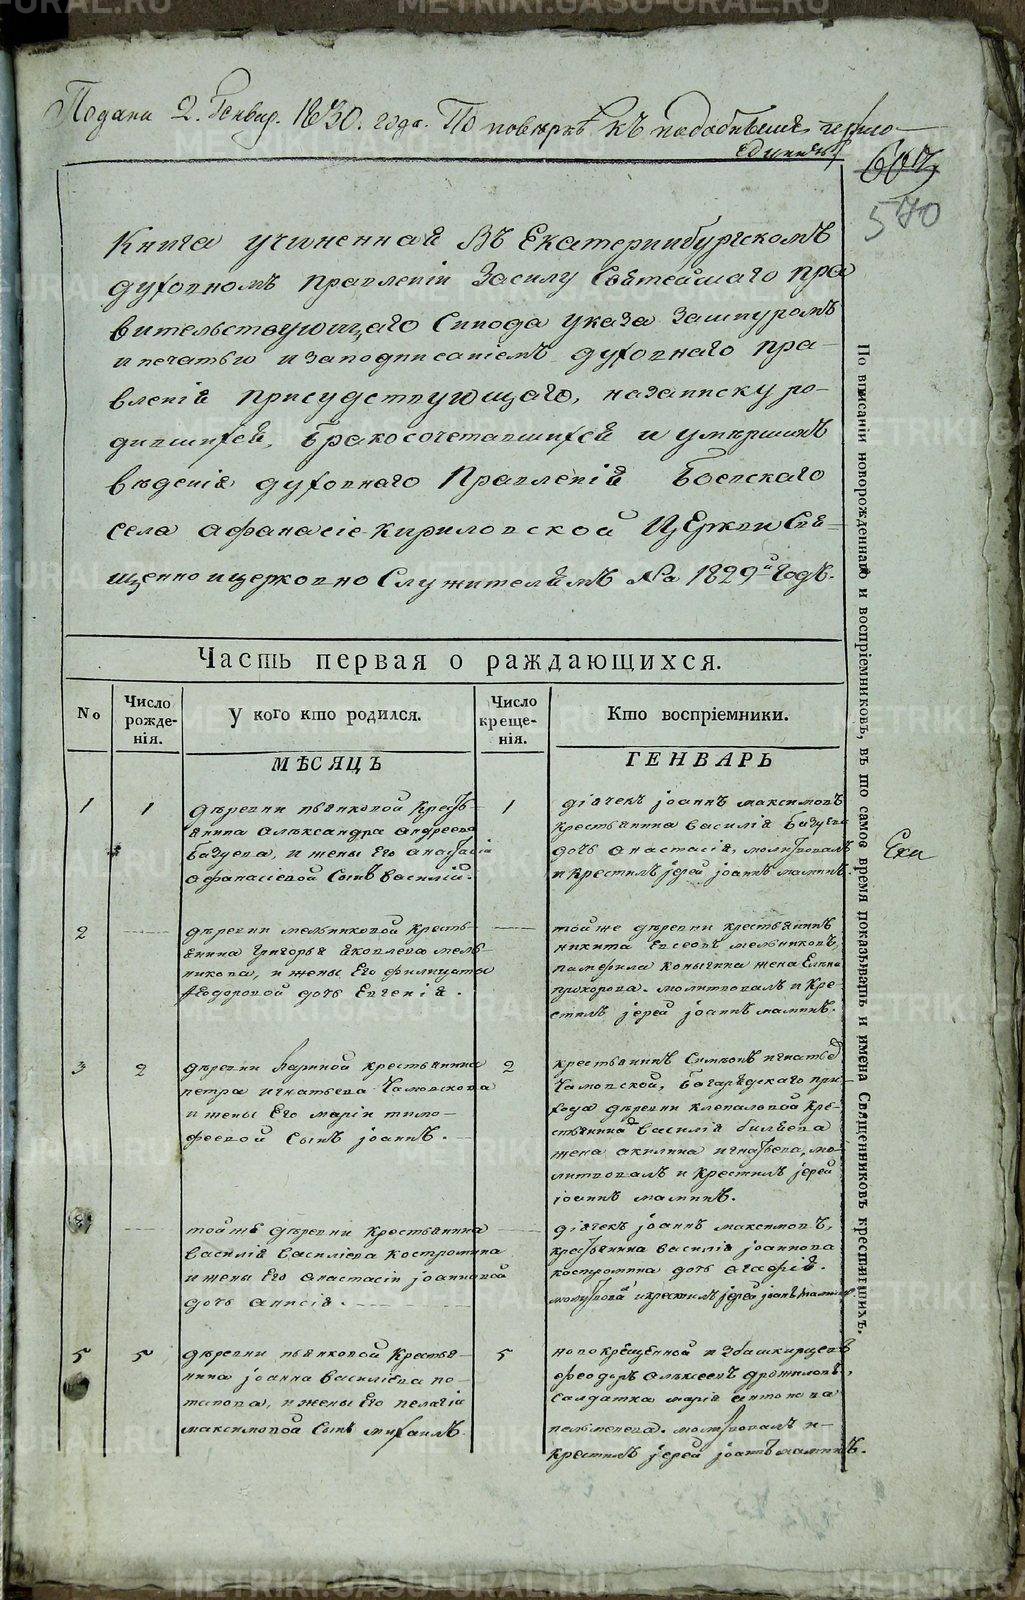 METRIKI.GASO-URAL.RU
Подана 2. Генвар. 1830. года. По повѣркѣ къ
602
570
Книга учиненная Въ Екатеринбургскомъ
духовномъ правленіи Засилу Святейшаго пра
вительствующаго Синода указа Зашнуромъ
и печатью изаподписаніемъ духовнаго пра-
вленія присудствующаго, назаписку ро-
дившихся, бракосочетавшихся и умершихъ
вѣденія духовнаго Правленія Боевскаго
села Афанасіе-Кириловской Церкви Свя-
щенно ицерковно Служителямъ На 1829й Годъ.
Часть первая о раждающихся.
No
Число рожде-нія.
У кого кто родился.
Число креще-нія.
Кто воспріемники.
МѢСЯЦЪ ГЕНВАРЬ
1 1 деревни пьянковой Кресть-
янина Александра Андреева
Базуева, и жены Его Анастасіи
Афанасіевой Сынъ Василій.
1 діячекъ іоаннъ максимовъ
крестьянина Василія Базуева
дочь Анастасія, молитвовалъ
и крестилъ іерей іоаннъ маминъ.
2 деревни мельниковой Кресть-
янина Григорья Яковлева мель-
никова, и жены Его филицаты
Феодоровой дочь Евгенія.
той же деревни крестьянинъ
никита Евсеевъ мельниковъ,
памфила коныгина жена Елена
прохорова. молитвовалъ и Кре-
стилъ іерей іоаннъ маминъ.
3 2 деревни крестьянина
петра игнатьева
и жены Его маріи тимо-
феевой Сынъ іоаннъ.
2 крестьянинъ Симеонъ игнатьев
Багарядскаго при-
хода деревни клепаловой кре-
стьянина Василія
жена акилина игнатьева, мо-
литвовалъ и крестилъ іерей
іоаннъ маминъ.
4 той же деревни крестьянина
василія василіева костромина
и жены Его Анастасіи іоанновой
дочь Анисія.
діячекъ іоаннъ максимовъ,
крестьянина василія іоаннова
костромина дочь Агафія.
молитвовал икрестилъ іерей іоаннъ маминъ
5 5 деревни пьянковой Крестья-
нина іоанна василіева по-
тапова, и жены Его пелагіи
максимовой Сынъ михаилъ.
5 новокрещенной изъ башкирцевъ
феодоръ Алексеевъ
салдатка марія антонова
пельменева. молитвовалъ и
крестилъ іерей іоаннъ маминъ.
По вписаніи новорожденнаго и воспріемниковъ, въ то самое время показывать и имена Священниковъ крестившихъ.
Ека